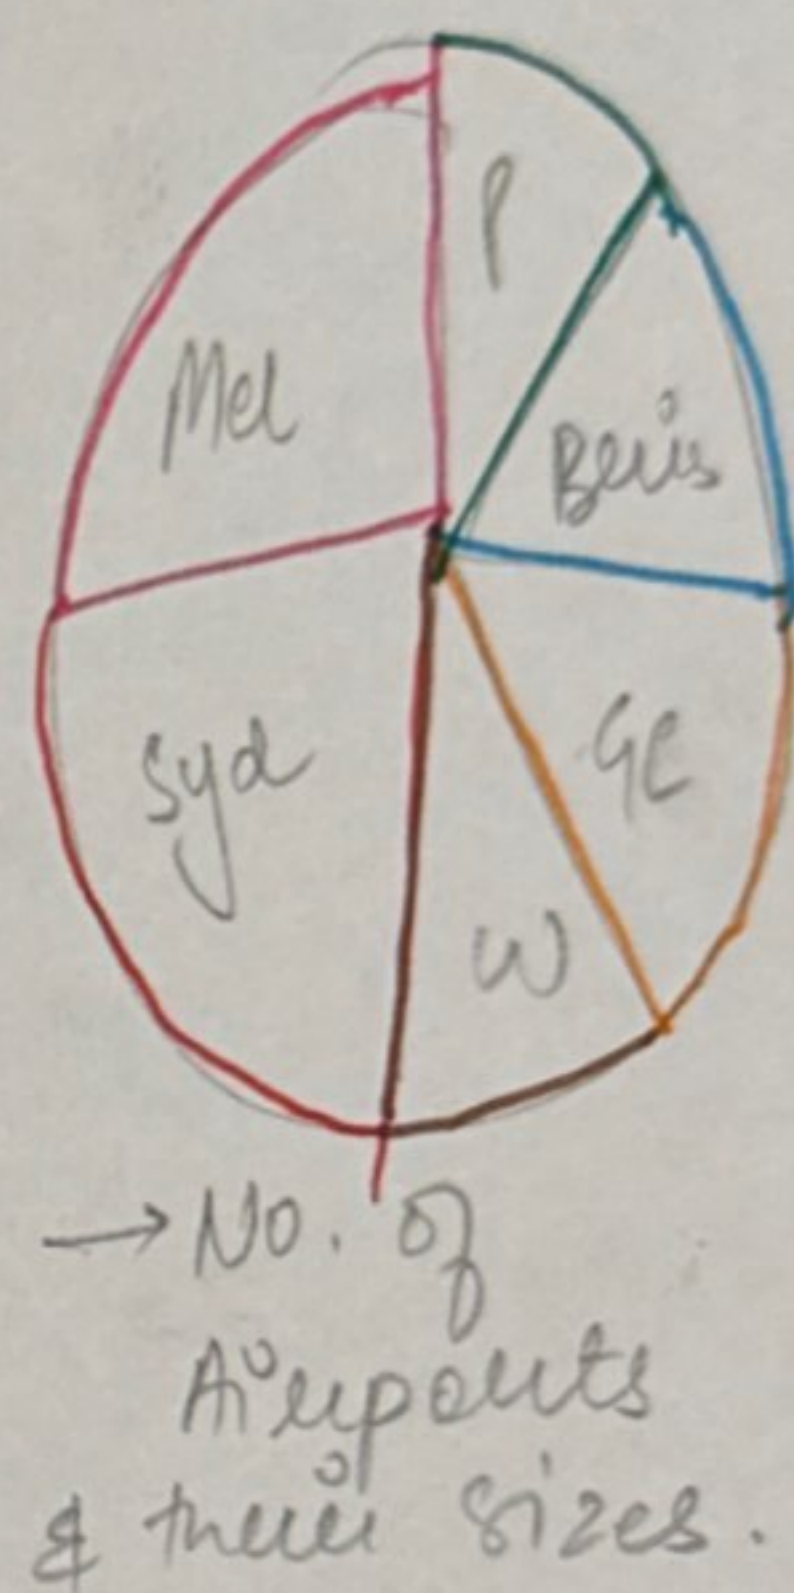 P
Mel
Bris
GC
Syd
W
→ No. of
Airports
& their sizes.